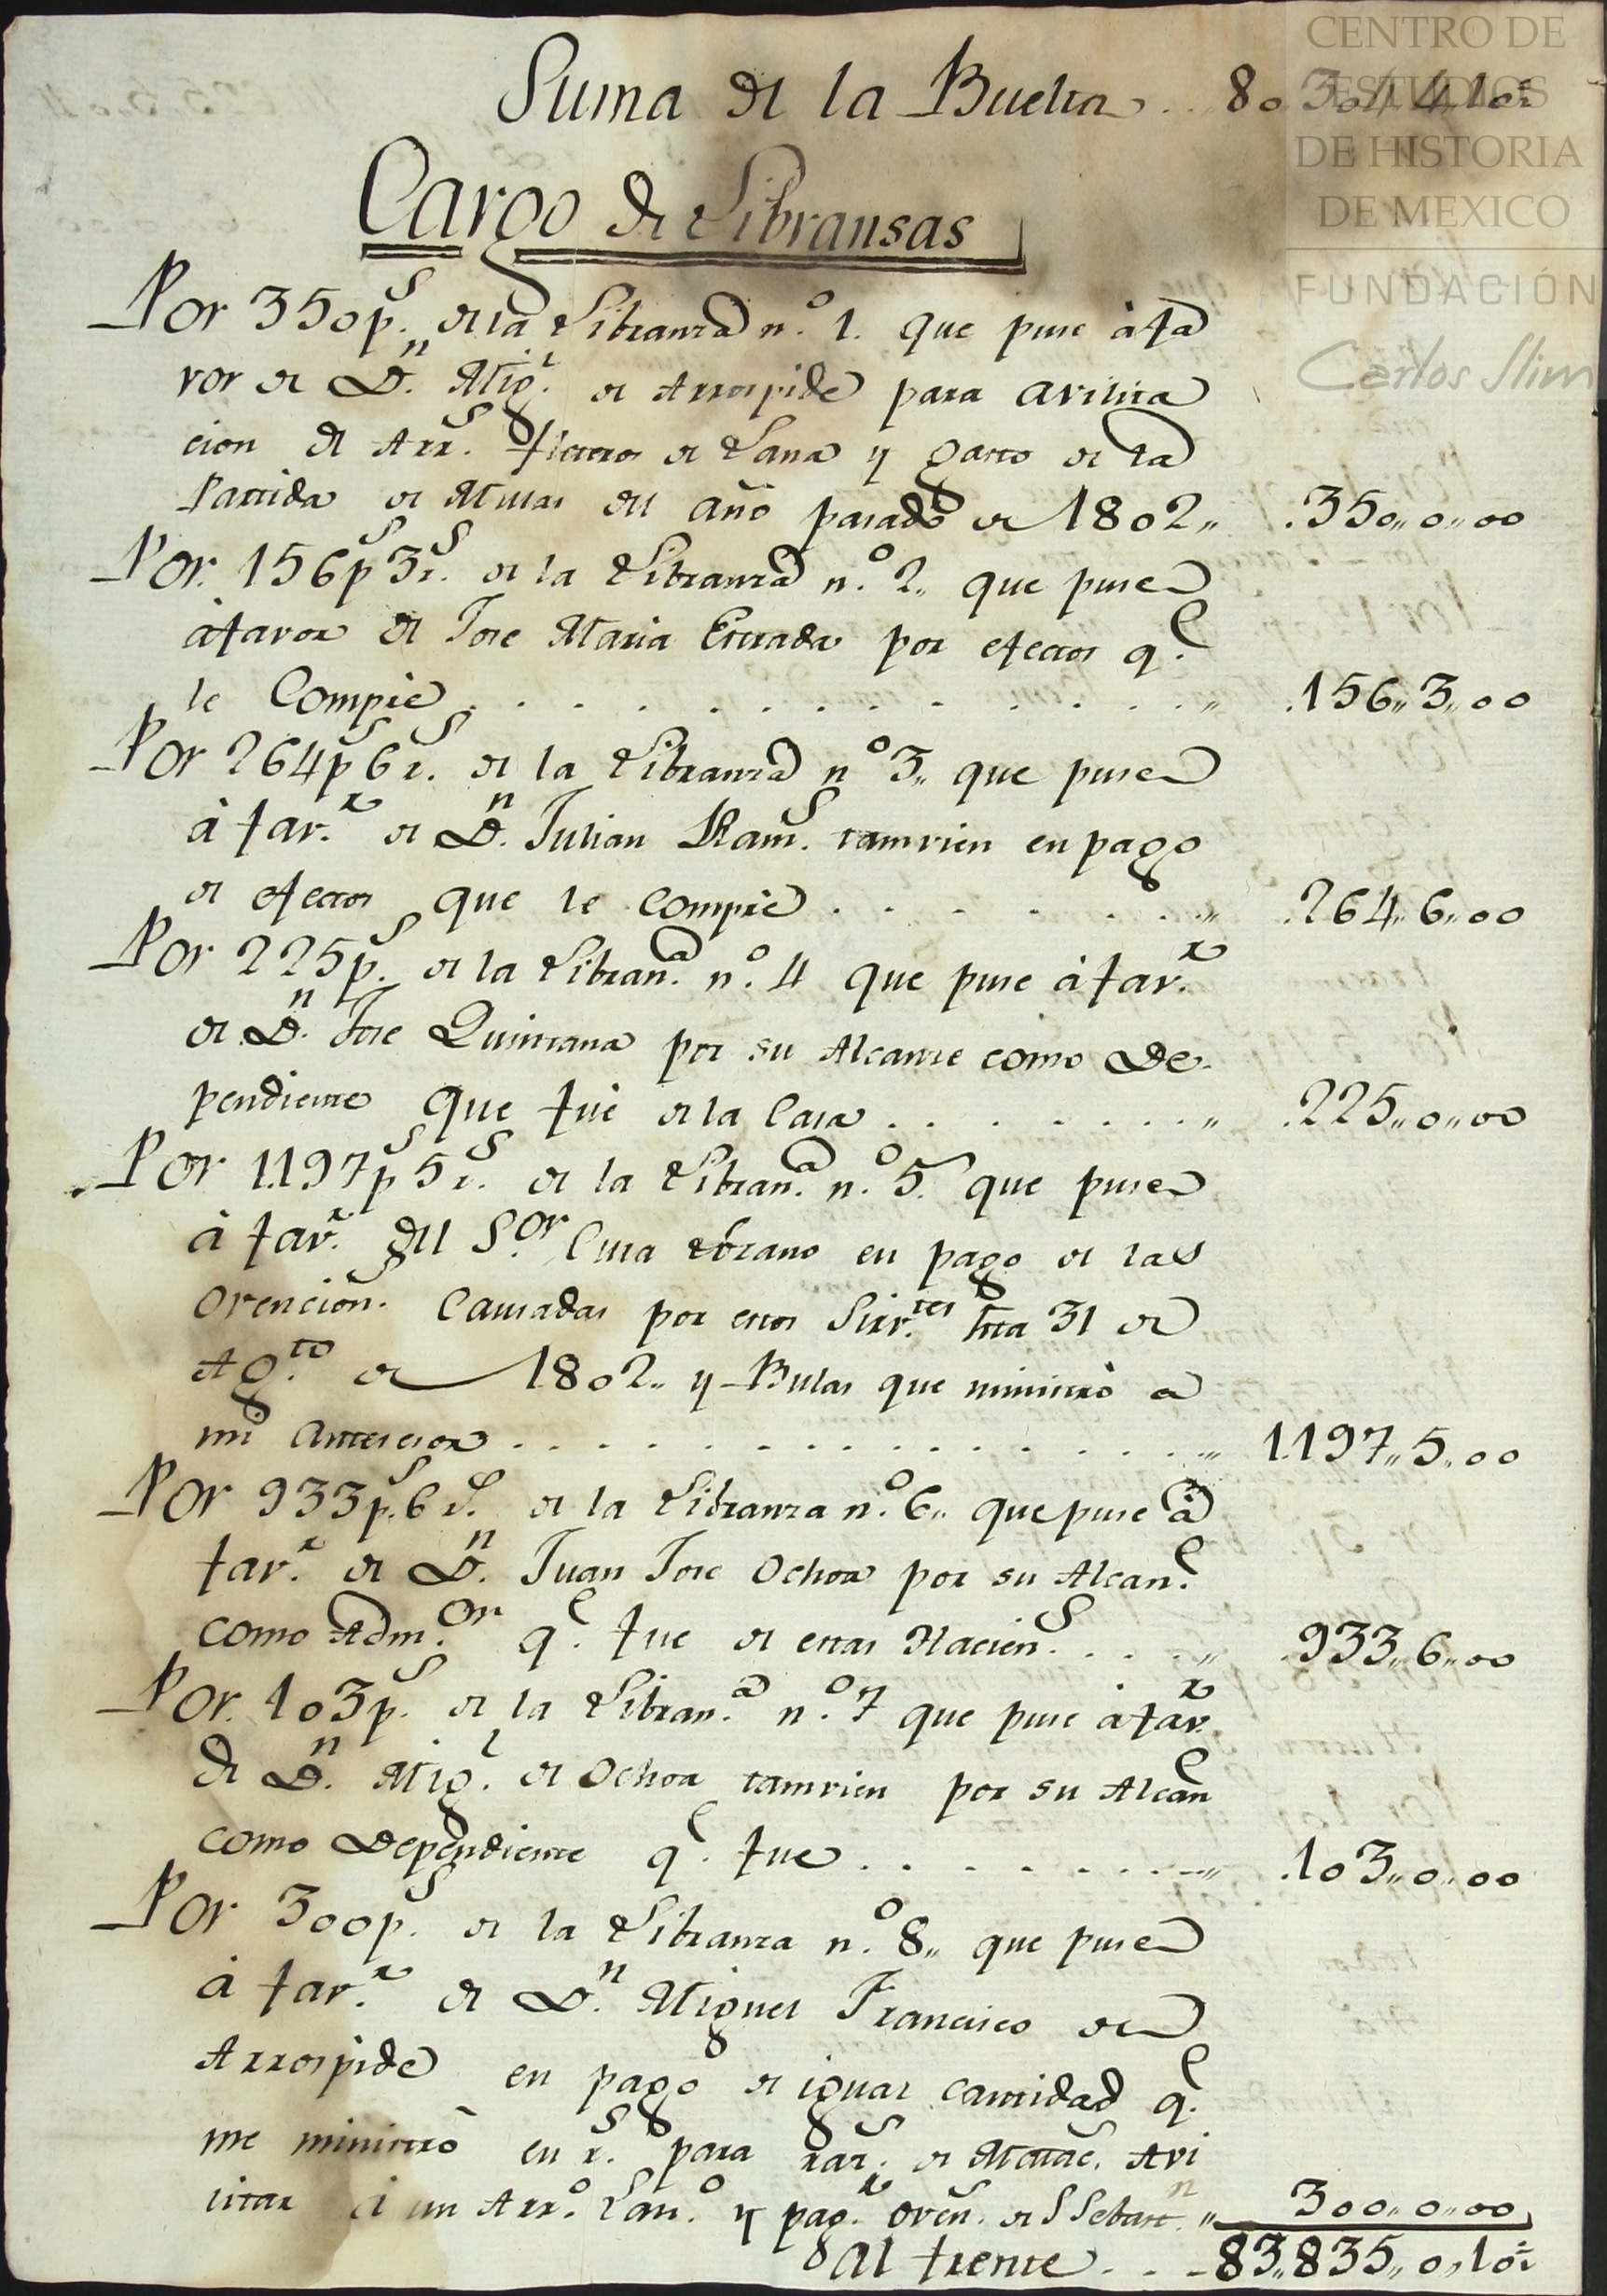 CENTRO DE
ESTUDIOS
DE HISTORIA
DE MEXICO
FUNDACIÓN
Carlos Slim
Suma de la Buelta .. 80.304,,4,,10½
Cargo de Libransas
Por 350 p.s de la Libranza n.o 1. que puse à fa
vor de D.n Mig.l de Arrospide para avilita
cion de Arr.s fleteros de Lana y gasto de la
Partida de Mulas del año pasado de 1802,, .350,,0,,00
Por. 156 p.s 3 r.s de la Libranza n.o 2,, que puse
à favor de Jose Maria Estrada por efectos q.e
le Compré . . . . . . . . . . . . . ,, .156,,3,,00
Por 264 p.s 6 r.s de la Libranza n.o 3,, que puse
à fav.r de D.n Julian Ram.s tamvien en pago
de efectos que le compré . . . . . . . ,, .264,,6,,00
Por 225 p.s de la Libran.a n.o 4 que puse à fav.r
de D.n Jose Quintana por su Alcanse como De-
pendiente que fué de la Casa . . . . . . ,, .225,,0,,00
Por 1.197 p.s 5 r.s de la Libran.a n.o 5. que puse
à fav.r del S.or Cura en pago de las
Ovencion.s Causadas por estos Sirv.tes hta 31 de
Ag.to de 1802,, y Bulas que ministró a
mi Antesesor . . . . . . . . . . . . ,, 1.197,,5,,00
Por 933 p.s 6 r.s de la Libranza n.o 6,, que puse à
fav.r de D.n Juan Jose Ochoa por su Alcan.e
como Adm.or q.e fue de estas Hacien.s . . . ,, .933,,6,,00
Por. 103 p.s de la Libran.a n.o 7 que puse à fav.r
de D.n Mig.l de Ochoa tamvien por su Alcan.e
como Dependiente q.e fue . . . . . . . ,, .103,,0,,00
Por 300 p.s de la Libranza n.o 8,, que puse
à fav.r de D.n Miguel Francisco de
Arrospide en pago de igual cantidad q.e
me ministró en r.s para rar.s de Matac. Avi
litar à un Arr.o Lan.o y pag.r oven.s de S Sebast.n ,, 300,,0,,00
Al frente . . . 83,,835,,0,,10½